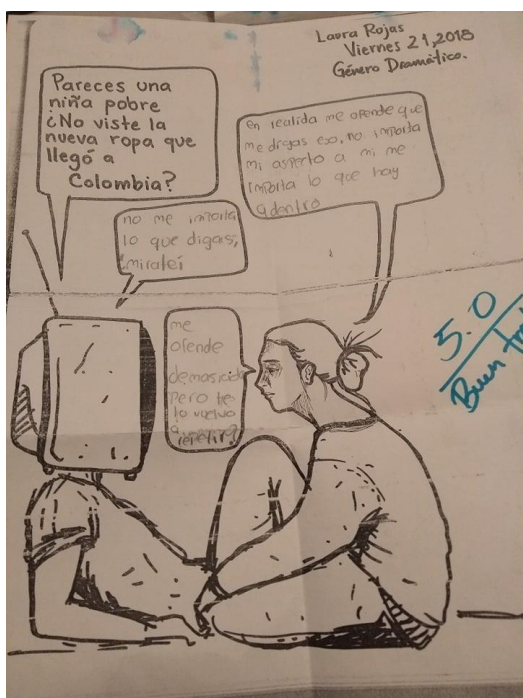 Laura Rojas
Viernes 21,2018
Género Dramático.
Pareces una
niña pobre
¿No viste la
nueva ropa que
llegó a
Colombia?
en realida me ofende que
me digas eso, no importa
mi asperto a mi me
importa lo que hay
adentro
no me importa
lo que digas,
me
ofende
demasiado
Pero te
lo vuelvo
a
repetir?
5.0
Buen